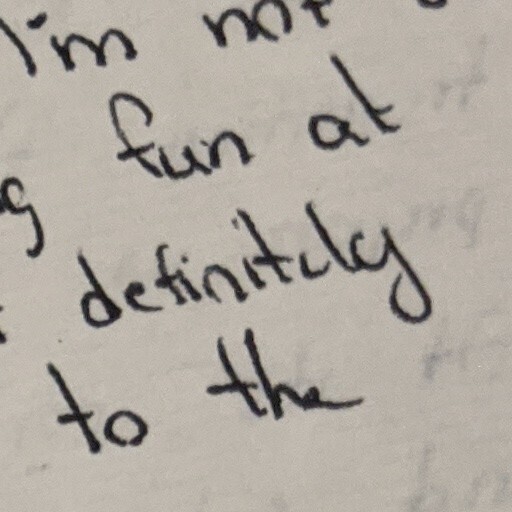 I'm not
fun at
definitely
to the